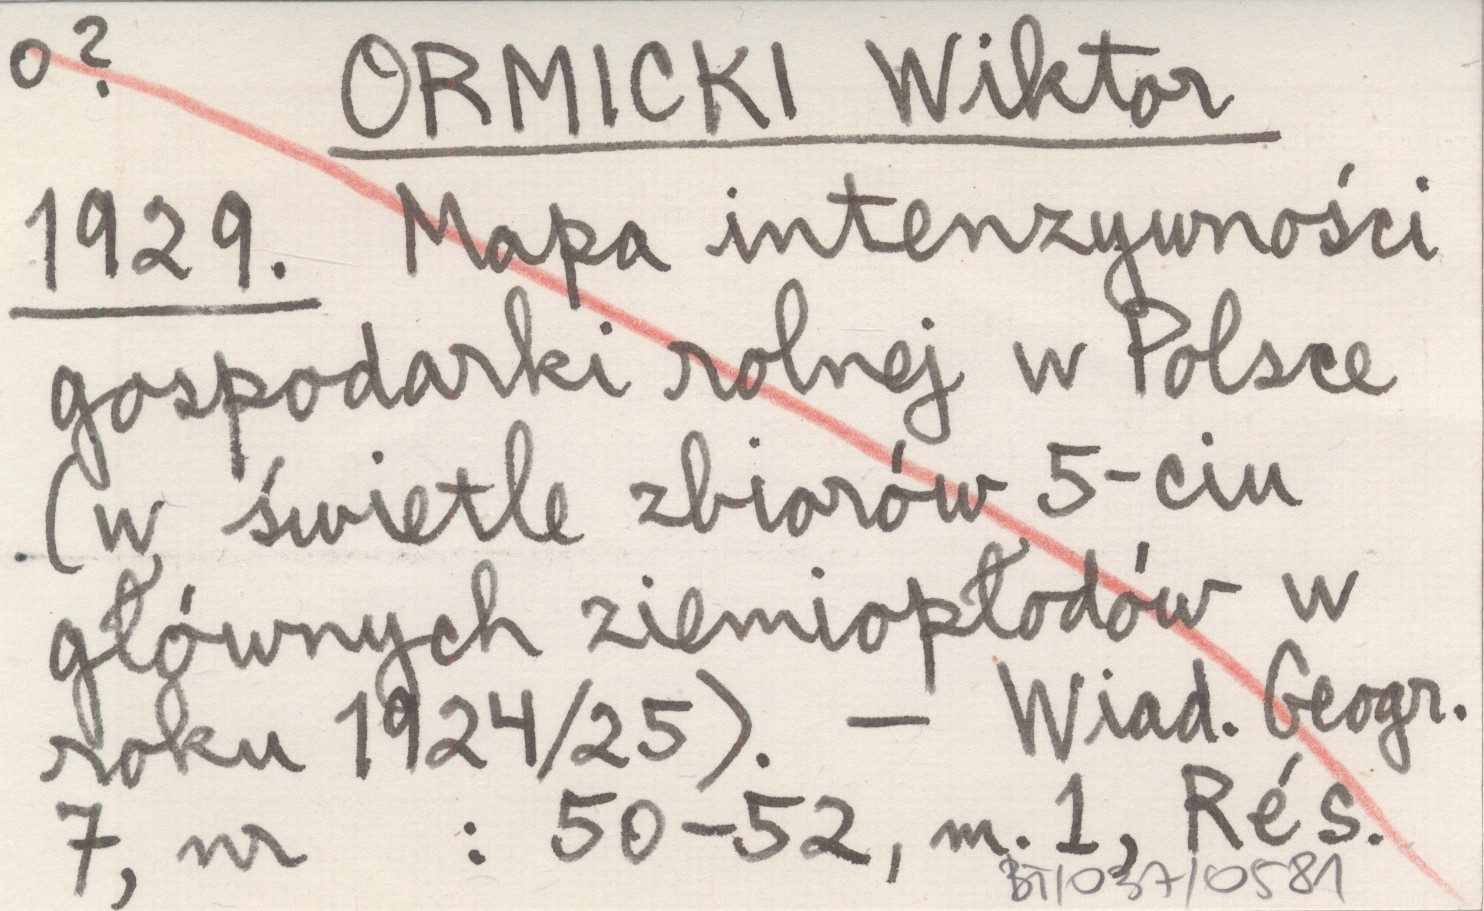 o? ORMICKI Wiktor
1929. Mapa intenzywności
gospodarki rolnej w Polsce
(w świetle zbiorów 5-ciu
głównych ziemiopłodów w
roku 1924/25). — Wiad. Geogr.
7, nr : 50-52, m. 1, Rés.
BT/037/0581